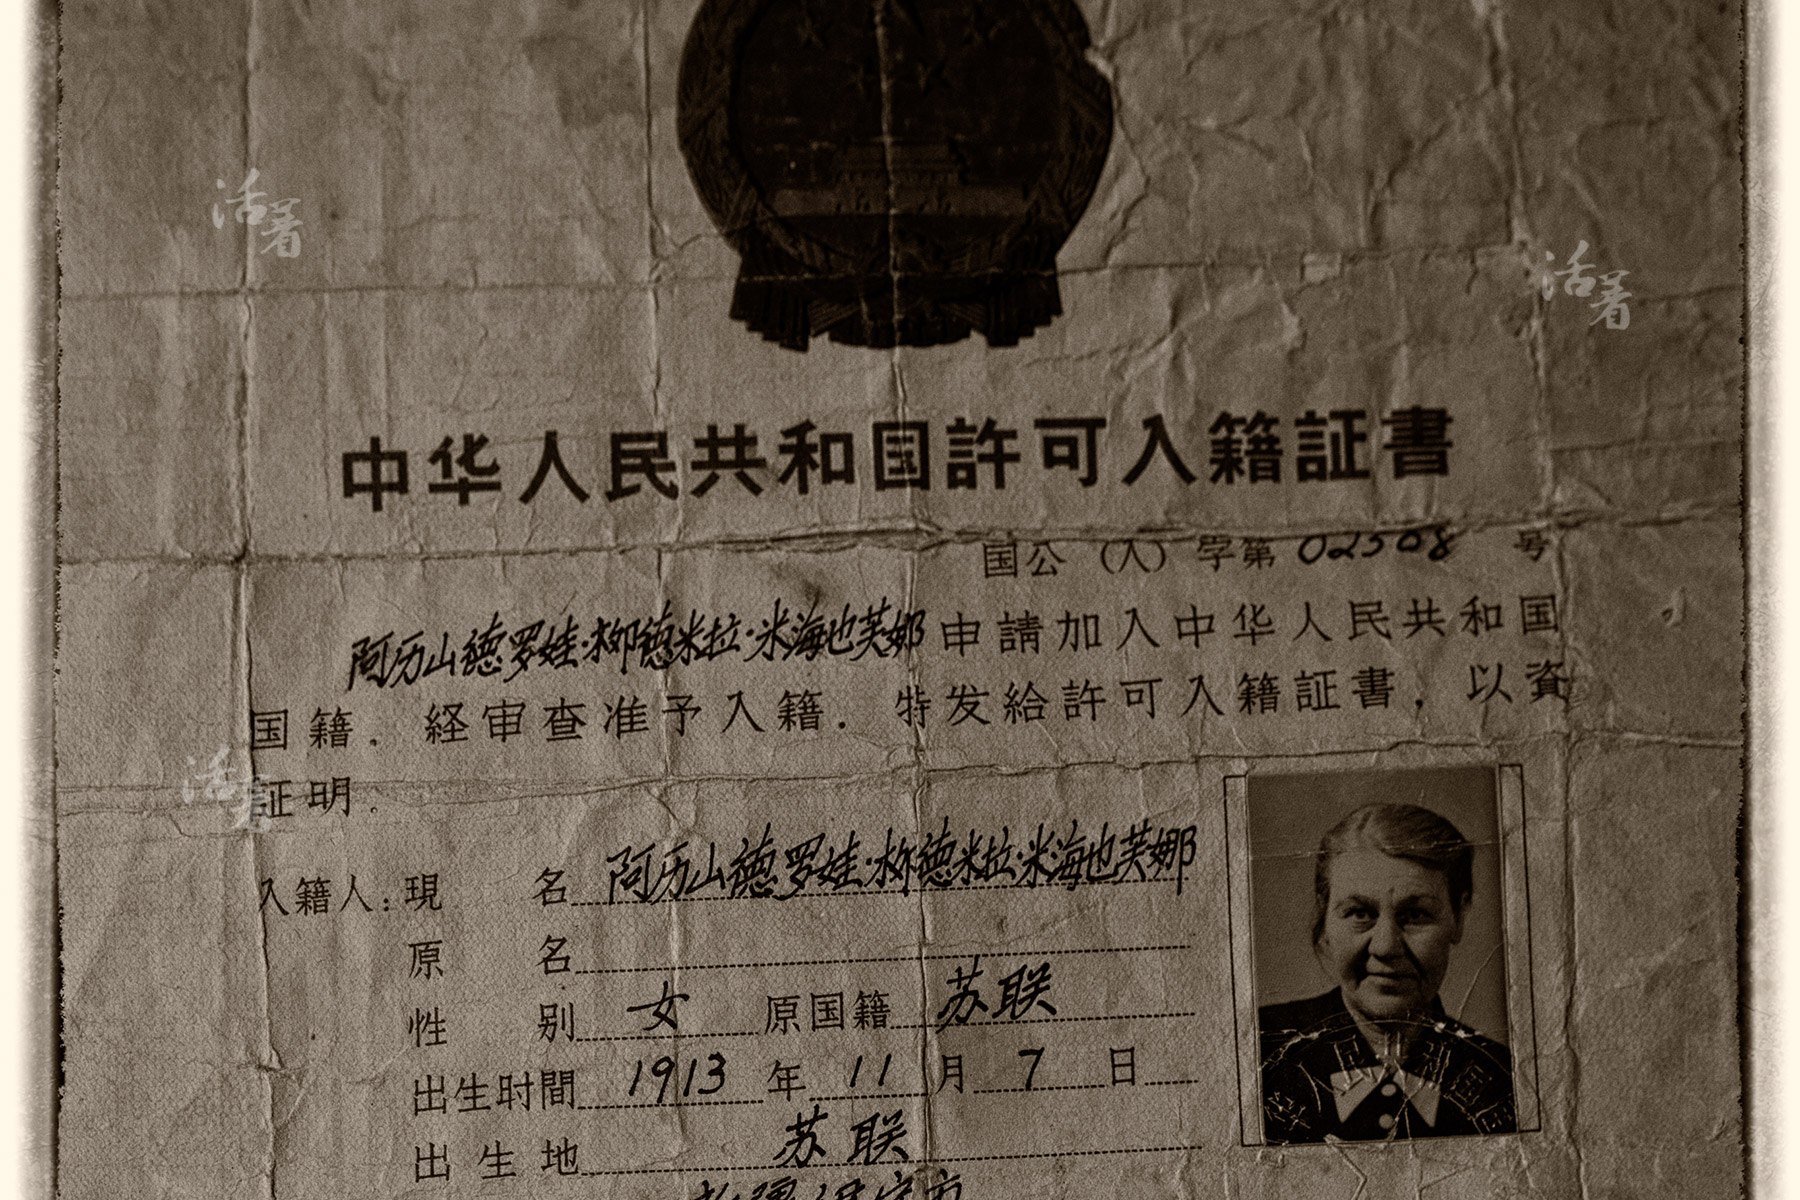 活着
活着
中华人民共和国許可入籍証書
国公（入）字第 02508 号
阿历山德罗娃·柳德米拉·米海也芙娜申請加入中华人民共和国
国籍．経审查准予入籍．特发給許可入籍証書，以資
証明．
活着
入籍人：現名 阿历山德罗娃·柳德米拉·米海也芙娜
原名
性别 女 原国籍 苏联
出生时間 1913 年 11 月 7 日
出生地 苏联